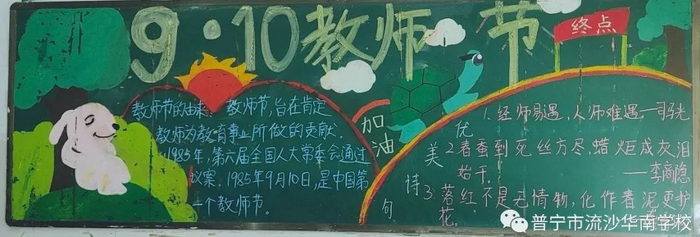 9·10教师节
终点
教师节的由来: 教师节,旨在肯定
教师为教育事业所做的贡献.
1985年,第六届全国人大常委会通过
议案. 1985年9月10日,是中国第
一个教师节。
加油
优美诗句
1.经师易遇,人师难遇—司马光
2.春蚕到死丝方尽,蜡炬成灰泪
始干.
—李商隐
3.落红不是无情物,化作春泥更护
花.
普宁市流沙华南学校